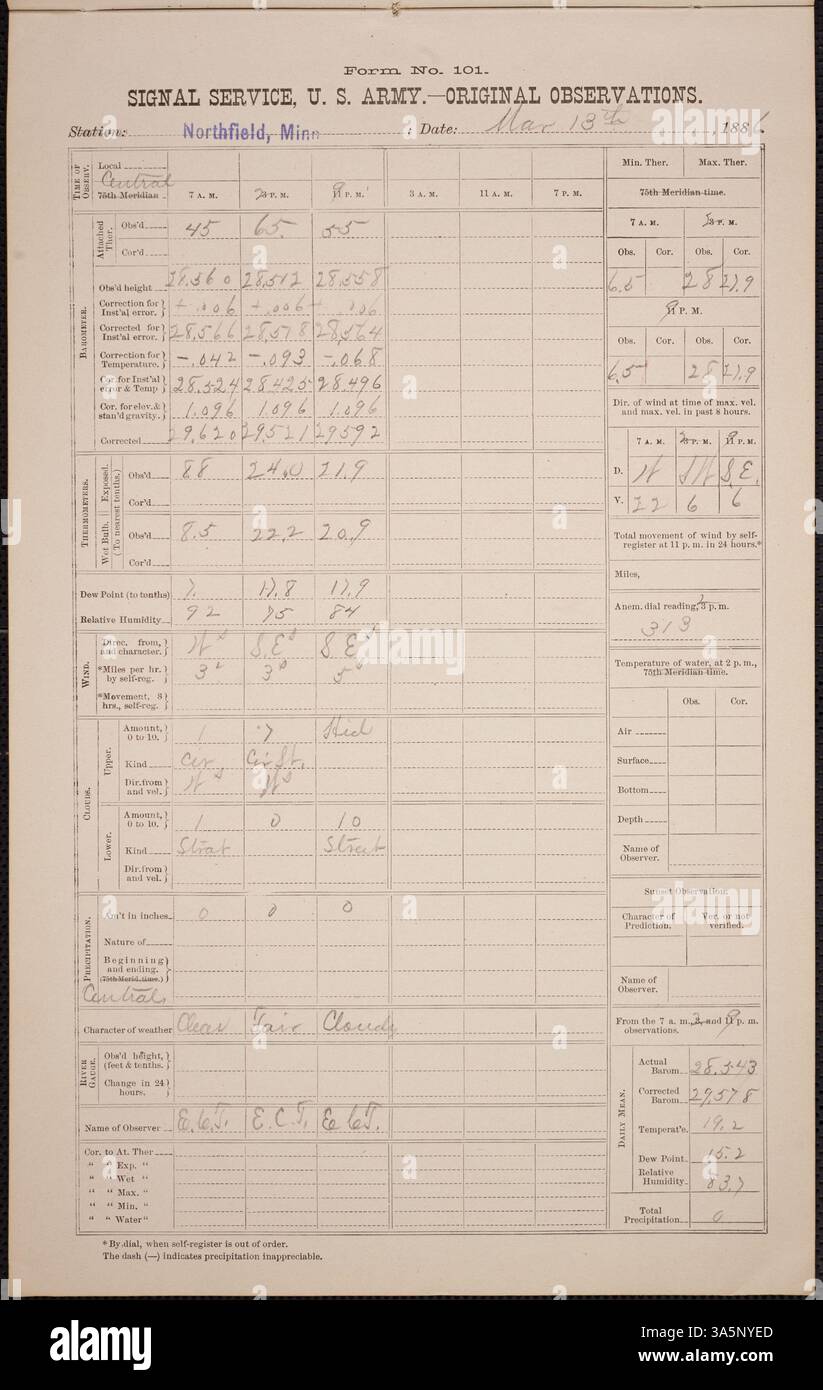 Form No. 101.
SIGNAL SERVICE, U. S. ARMY.—ORIGINAL OBSERVATIONS.
Station: Northfield, Minn : Date: Mar 13th , 1886
TIME OF OBSERV.
Local
Central
75th Meridian 7 A. M. 2 3 P. M. 9 11 P. M. 3 A. M. 11 A. M. 7 P. M.
Attached Ther.
Obs'd 45 65. 55
Cor'd
BAROMETER.
Obs'd height 28.560 28.512 28.558
Correction for Inst'al error. +.006 +.006 +.006
Corrected for Inst'al error. 28.566 28.518 28.564
Correction for Temperature. -.042 -.093 -.068
Cor. for Inst'al error & Temp 28.524 28.425 28.496
Cor. for elev. & stan'd gravity. 1.096 1.096 1.096
Corrected 29.620 29.521 29.592
THERMOMETERS.
Exposed.
(To nearest tenths.)
Obs'd 8.8 24.0 21.9
Cor'd
Wet Bulb.
Obs'd 8.5 22.2 20.9
Cor'd
Dew Point (to tenths) 7. 17.8 17.9
Relative Humidity 92 75 84
WIND.
Direc. from, and character. S.E. S.E.
*Miles per hr. by self-reg. 3 3 5
*Movement, 8 hrs., self-reg.
CLOUDS.
Upper.
Amount, 0 to 10. 1 7 Hid
Kind Cir Cir St.
Dir. from and vel.
Lower.
Amount, 0 to 10. 1 0 10
Kind Strat Strat
Dir. from and vel.
PRECIPITATION.
Am't in inches 0 0 0
Nature of
Beginning and ending.
(75th Merid. time.)
Central
Character of weather Clear Fair Cloudy
RIVER GAUGE.
Obs'd height, (feet & tenths.
Change in 24 hours.
Name of Observer E.C.T. E.C.T. E.C.T.
Cor. to At. Ther
" " Exp. "
" " Wet "
" " Max. "
" " Min. "
" " Water "
* By dial, when self-register is out of order.
The dash (—) indicates precipitation inappreciable.
Min. Ther. Max. Ther.
75th Meridian time.
7 A. M. 3 P. M.
Obs. Cor. Obs. Cor.
6.5 28 27.9
9 11 P. M.
Obs. Cor. Obs. Cor.
6.5 28 27.9
Dir. of wind at time of max. vel. and max. vel. in past 8 hours.
7 A. M. 2 3 P. M. 9 11 P. M.
D. S.E.
V. 6 6
Total movement of wind by self-register at 11 p. m. in 24 hours.*
Miles,
Anem. dial reading, 2 3 p. m.
313
Temperature of water, at 2 p. m., 75th Meridian time.
Obs. Cor.
Air
Surface
Bottom
Depth
Name of Observer.
Sunset Observation:
Character of Prediction. Ver. or not verified.
Name of Observer.
From the 7 a. m., 2, and 9 11 p. m. observations.
DAILY MEAN.
Actual Barom. 28.543
Corrected Barom. 29.578
Temperat'e. 19.2
Dew Point 15.2
Relative Humidity 83.7
Total Precipitation 0
alamy
Image ID: 3A5NYED
www.alamy.com